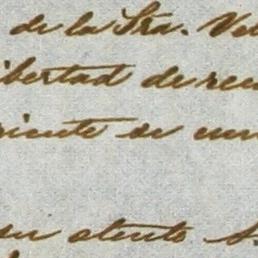 de la Sra. Vel
ibertad de rec
riente se cum
su atento S.